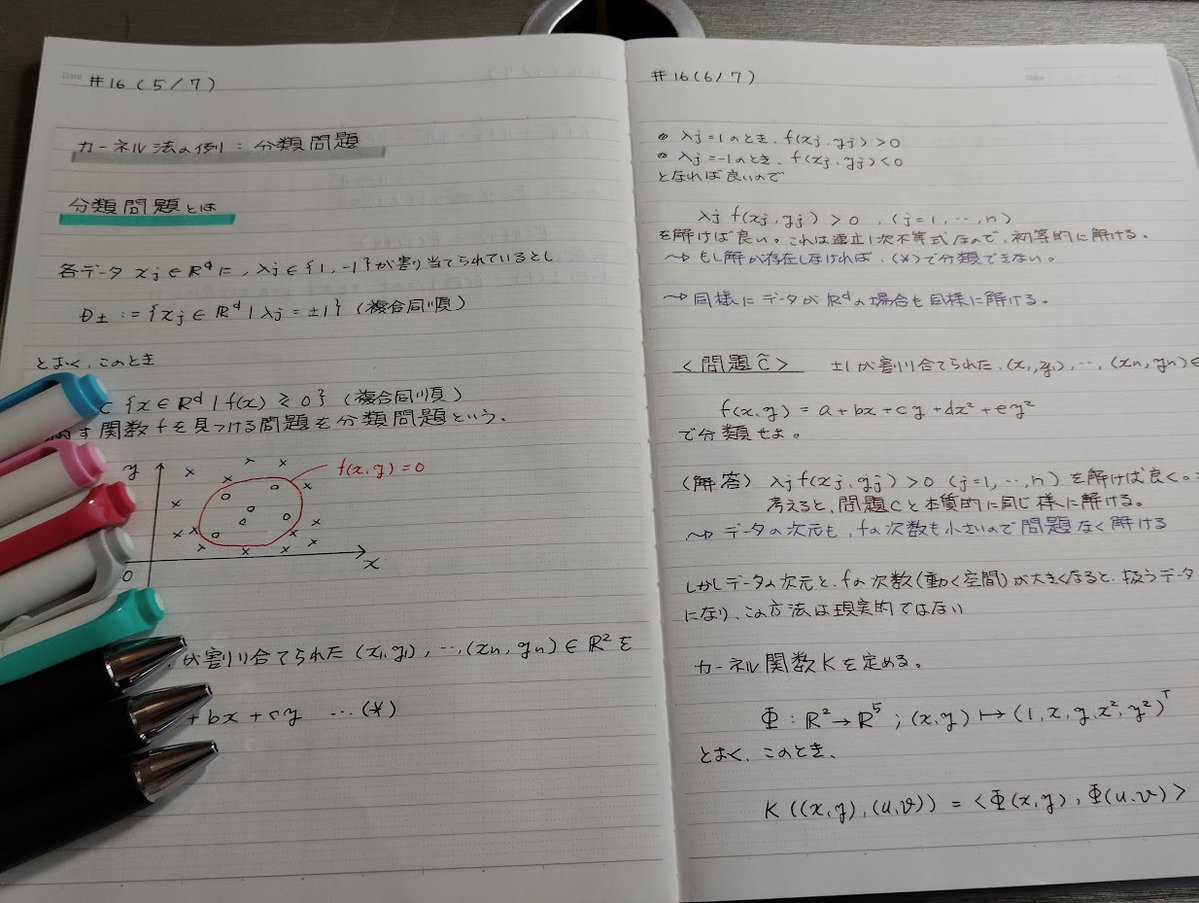 Date
#16 (5/7)
カーネル法の例1:分類問題
分類問題とは
各データ xj ∈ ℝᵈ に, λj ∈ {1, -1} が割り当てられているとし,
D± := {xj ∈ ℝᵈ | λj = ±1} (複合同順)
とおく, このとき
⊂ {x ∈ ℝᵈ | f(x) ≷ 0} (複合同順)
たす関数fを見つける問題を分類問題という.
y
f(x,y)=0
x
0
が割り合てられた (x1,y1), …, (xn,yn) ∈ ℝ² を
+bx+cy …(*)
#16 (6/7)
Date
• λj=1のとき, f(xj,yj)>0
• λj=-1のとき, f(xj,yj)<0
となれば良いので
λj f(xj,yj) > 0 , (j=1, …, n)
を解けば良い。これは連立1次不等式なので, 初等的に解ける。
⇝ もし解が存在しなければ, (*)で分類できない。
⇝ 同様にデータがℝᵈの場合も同様に解ける。
<問題C̃> ±1が割り合てられた, (x1,y1), …, (xn,yn) ∈
f(x,y) = a+bx+cy+dx²+ey²
で分類せよ。
(解答) λj f(xj,yj) > 0 (j=1, …, n) を解けば良く。
考えると, 問題Cと本質的に同じ様に解ける。
⇝ データの次元も, fの次数も小さいので問題なく解ける
しかしデータの次元と, fの次数(動く空間)が大きくなると, 扱うデータ
になり, この方法は現実的ではない
カーネル関数Kを定める。
Φ : ℝ² → ℝ⁵ ; (x,y) ↦ (1, x, y, x², y²)ᵀ
とおく, このとき,
K((x,y),(u,v)) = <Φ(x,y), Φ(u,v)>